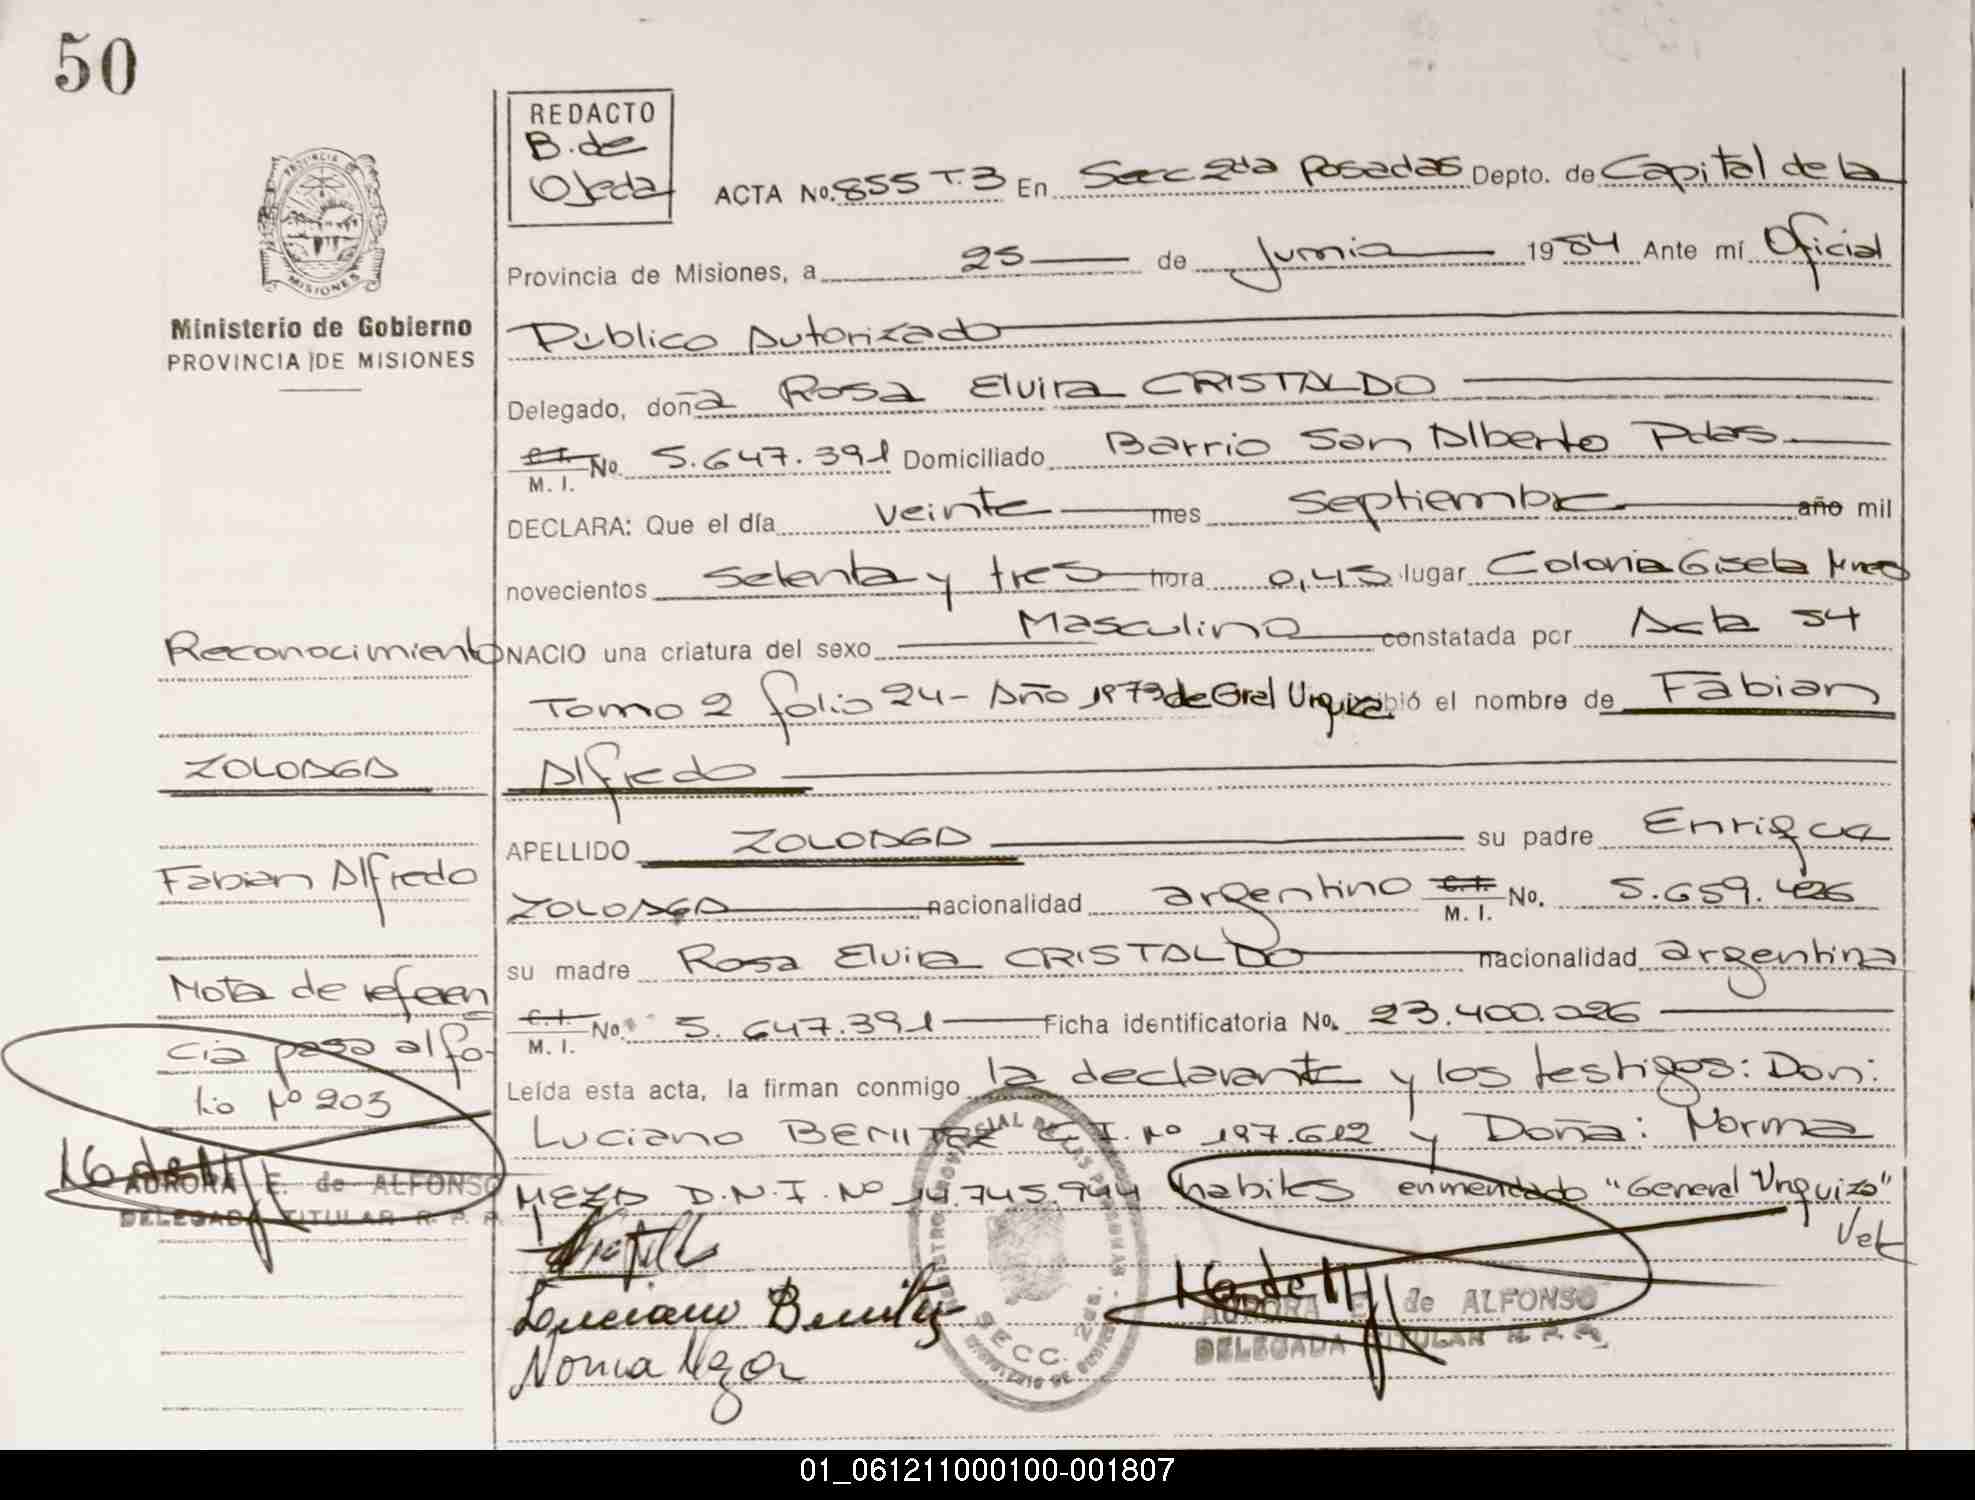 50
REDACTO
B. de
Ojeda
ACTA No. 855 T. 3 En Secc 2da Posadas Depto. de Capital de la
Provincia de Misiones, a 25 de Junio 1984 Ante mí Oficial
Ministerio de Gobierno
PROVINCIA DE MISIONES
Público Autorizado
Delegado, doña Rosa Elvira CRISTALDO
C.I. M. I. No. 5.647.391 Domiciliado Barrio San Alberto Pdas
DECLARA: Que el día veinte mes Septiembre año mil
novecientos setenta y tres hora 0,45 lugar Colonia Gisela Mnes
Reconocimiento
NACIO una criatura del sexo Masculino constatada por Acta 54
Tomo 2 folio 24 - Año 1973 de Gral Urquiza bió el nombre de Fabian
ZOLOAGA
Alfredo
APELLIDO ZOLOAGA su padre Enrique
Fabian Alfredo
ZOLOAGA nacionalidad argentino C.I. M. I. No. 5.659.426
su madre Rosa Elvira CRISTALDO nacionalidad argentina
Nota de referen
C.I. M. I. No. 5.647.391 Ficha identificatoria No. 23.400.026
cia pasa al fo-
Leída esta acta, la firman conmigo la declarante y los testigos: Don:
lio Nº 203
Luciano BENITEZ C.I. Nº 197.612 y Doña: Norma
AURORA E. de ALFONSO
DELEGADA TITULAR R. P. P.
MEZA D.N.I. Nº 14.745.944 habiles enmendado "General Urquiza"
Vale
Luciano Benitez
Norma Meza
SECC. 2da.
AURORA E. de ALFONSO
DELEGADA TITULAR R. P. P.
01_061211000100-001807